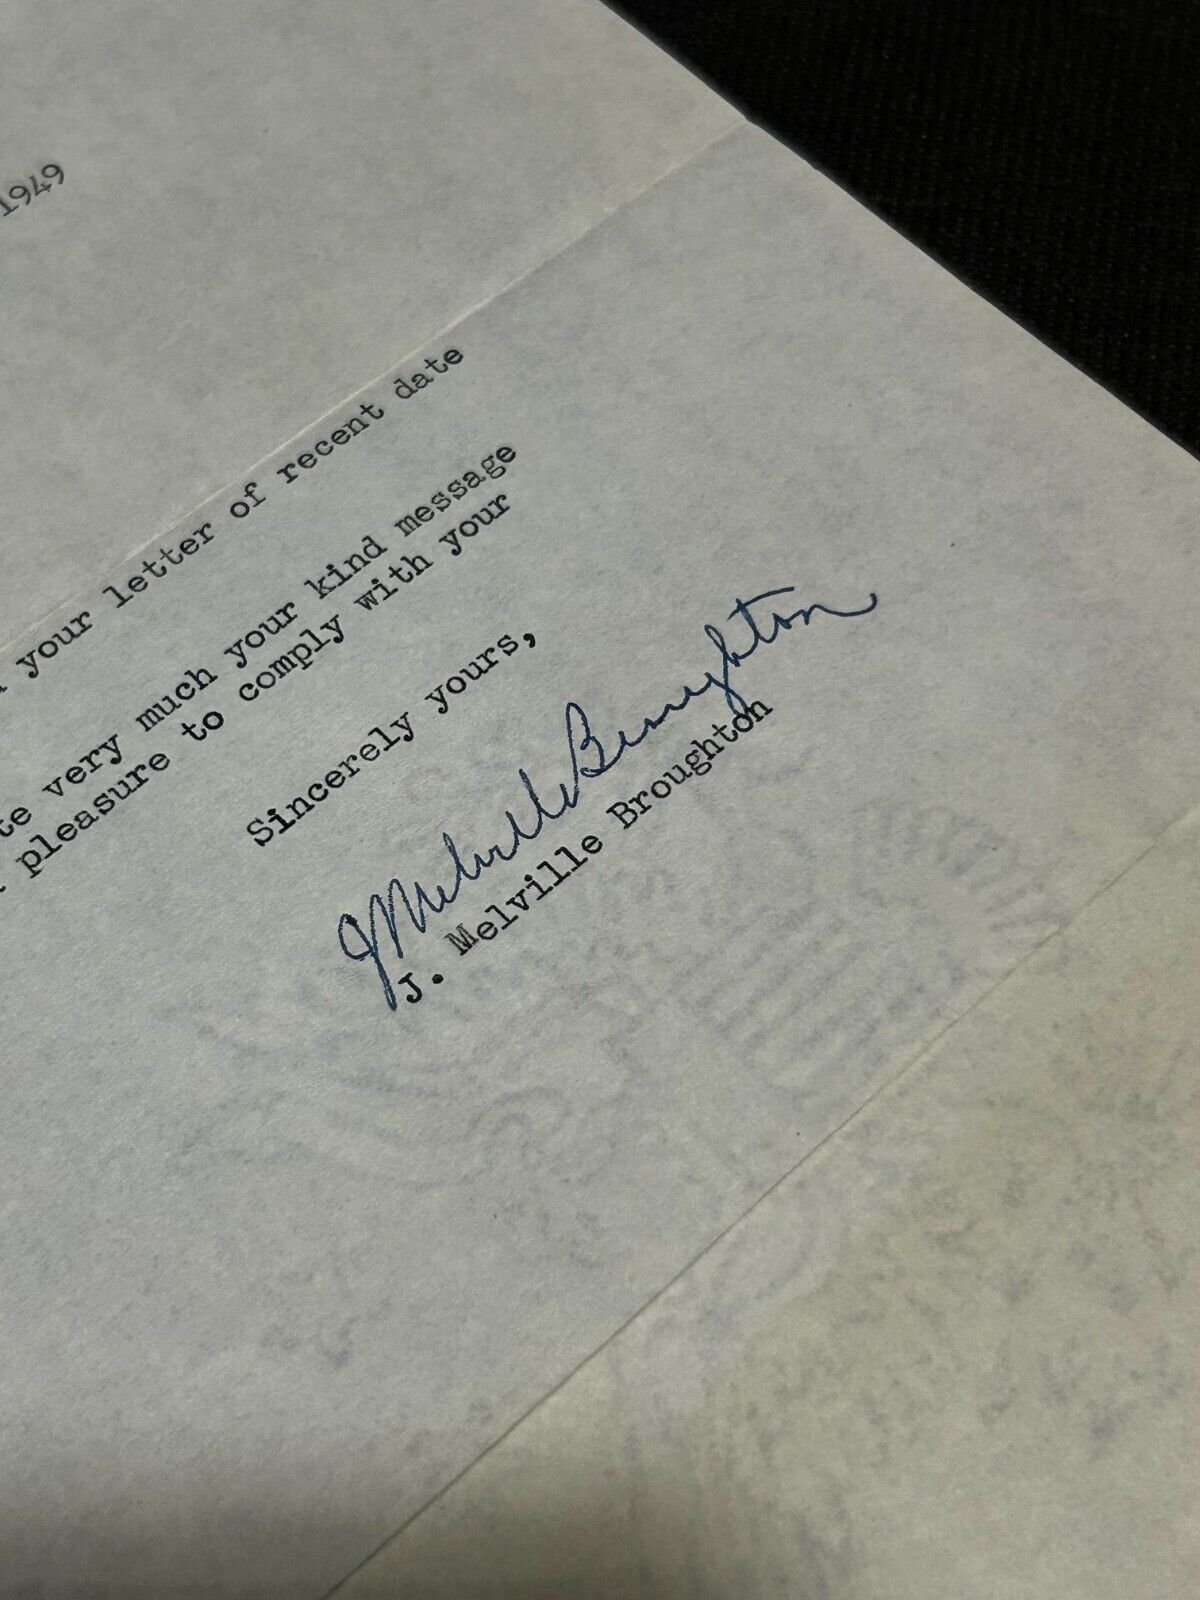 1949
your letter of recent date
very much your kind message
pleasure to comply with your
Sincerely yours,
J Melville Broughton
J. Melville Broughton